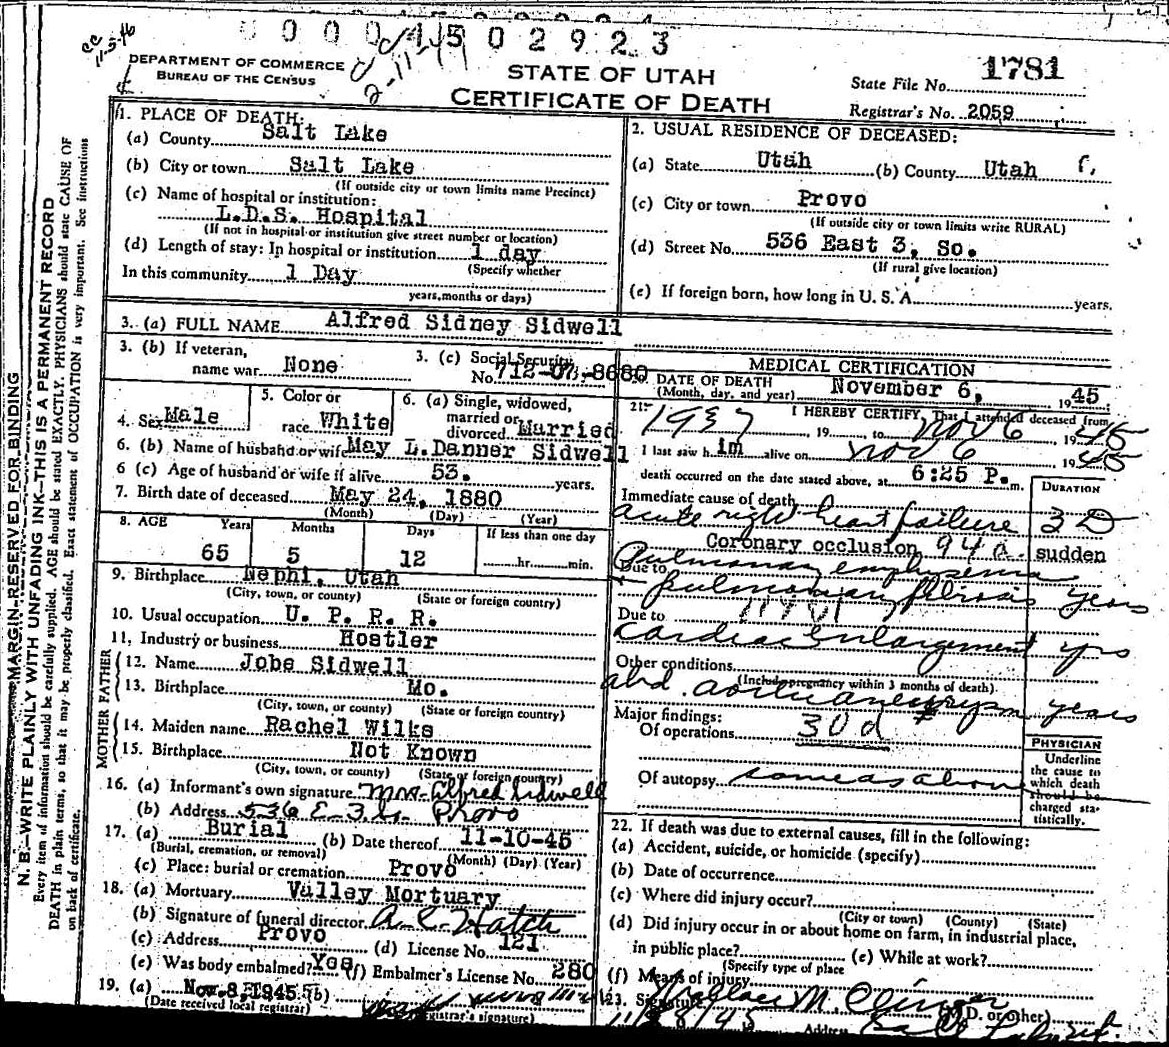 0 0 0 0 4 5 0 2 9 2 3
DEPARTMENT OF COMMERCE
BUREAU OF THE CENSUS
STATE OF UTAH
CERTIFICATE OF DEATH
State File No. 1781
Registrar's No. 2059
1. PLACE OF DEATH:
(a) County Salt Lake
(b) City or town Salt Lake
(If outside city or town limits name Precinct)
(c) Name of hospital or institution:
L.D.S. Hospital
(If not in hospital or institution give street number or location)
(d) Length of stay: In hospital or institution 1 day
(Specify whether
In this community 1 Day
years, months or days)
2. USUAL RESIDENCE OF DECEASED:
(a) State Utah (b) County Utah
(c) City or town Provo
(If outside city or town limits write RURAL)
(d) Street No. 536 East 3, So.
(If rural give location)
(e) If foreign born, how long in U. S. A. years.
3. (a) FULL NAME Alfred Sidney Sidwell
3. (b) If veteran, name war None
3. (c) Social Security No. 712-07-8680
4. Sex Male
5. Color or race White
6. (a) Single, widowed, married or divorced Married
6. (b) Name of husband or wife May L. Danner Sidwell
6 (c) Age of husband or wife if alive 53. years.
7. Birth date of deceased May 24, 1880
(Month) (Day) (Year)
8. AGE Years Months Days If less than one day
65 5 12 hr. min.
9. Birthplace Nephi, Utah
(City, town, or county) (State or foreign country)
10. Usual occupation U. P. R. R.
11, Industry or business Hostler
FATHER
12. Name Jobe Sidwell
13. Birthplace Mo.
(City, town, or county) (State or foreign country)
MOTHER
14. Maiden name Rachel Wilks
15. Birthplace Not Known
(City, town, or county) (State or foreign country)
16. (a) Informant's own signature Mrs. Alfred Sidwell
(b) Address 536 E-3 So. Provo
17. (a) Burial (b) Date thereof 11-10-45
(Burial, cremation, or removal) (Month) (Day) (Year)
(c) Place: burial or cremation Provo
18. (a) Mortuary Valley Mortuary
(b) Signature of funeral director A. C. Hatch
(c) Address Provo (d) License No. 121
(e) Was body embalmed? Yes (f) Embalmer's License No. 280
19. (a) Nov. 8, 1945 (b)
(Date received local registrar) (Registrar's signature)
MEDICAL CERTIFICATION
20. DATE OF DEATH (Month, day, and year) November 6, 1945
21. I HEREBY CERTIFY, That I attended deceased from
1937 19 to Nov 6 1945
I last saw him alive on Nov 6 1945
death occurred on the date stated above, at 6:25 P. m.
DURATION
Immediate cause of death
acute right heart failure 3 D
Coronary occlusion 94a. sudden
Due to Pulmonary emphysema
pulmonary fibrosis years
Due to
cardiac enlargement yrs
Other conditions
(Include pregnancy within 3 months of death)
abd. aortic aneurysm years
Major findings:
Of operations 30d
Of autopsy same as above
PHYSICIAN
Underline
the cause to
which death
should be
charged sta-
tistically.
22. If death was due to external causes, fill in the following:
(a) Accident, suicide, or homicide (specify)
(b) Date of occurrence
(c) Where did injury occur?
(City or town) (County) (State)
(d) Did injury occur in or about home on farm, in industrial place,
in public place? (e) While at work?
(Specify type of place
(f) Means of injury
23. Signature (M.D. or other)
11/8/45 Address
MARGIN-RESERVED FOR BINDING
N. B.—WRITE PLAINLY WITH UNFADING INK—THIS IS A PERMANENT RECORD
Every item of information should be carefully supplied. AGE should be stated EXACTLY. PHYSICIANS should state CAUSE OF
DEATH in plain terms, so that it may be properly classified. Exact statement of OCCUPATION is very important. See instructions
on back of certificate.